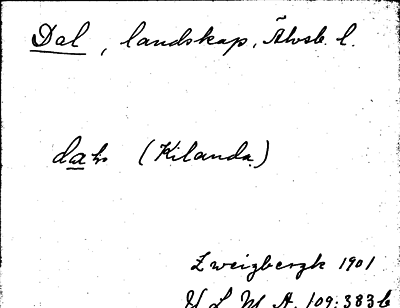 Dal, landskap, Älvsb. l.
(Kilanda)
Zweigbergk 1901
U L M A. 109:383 b